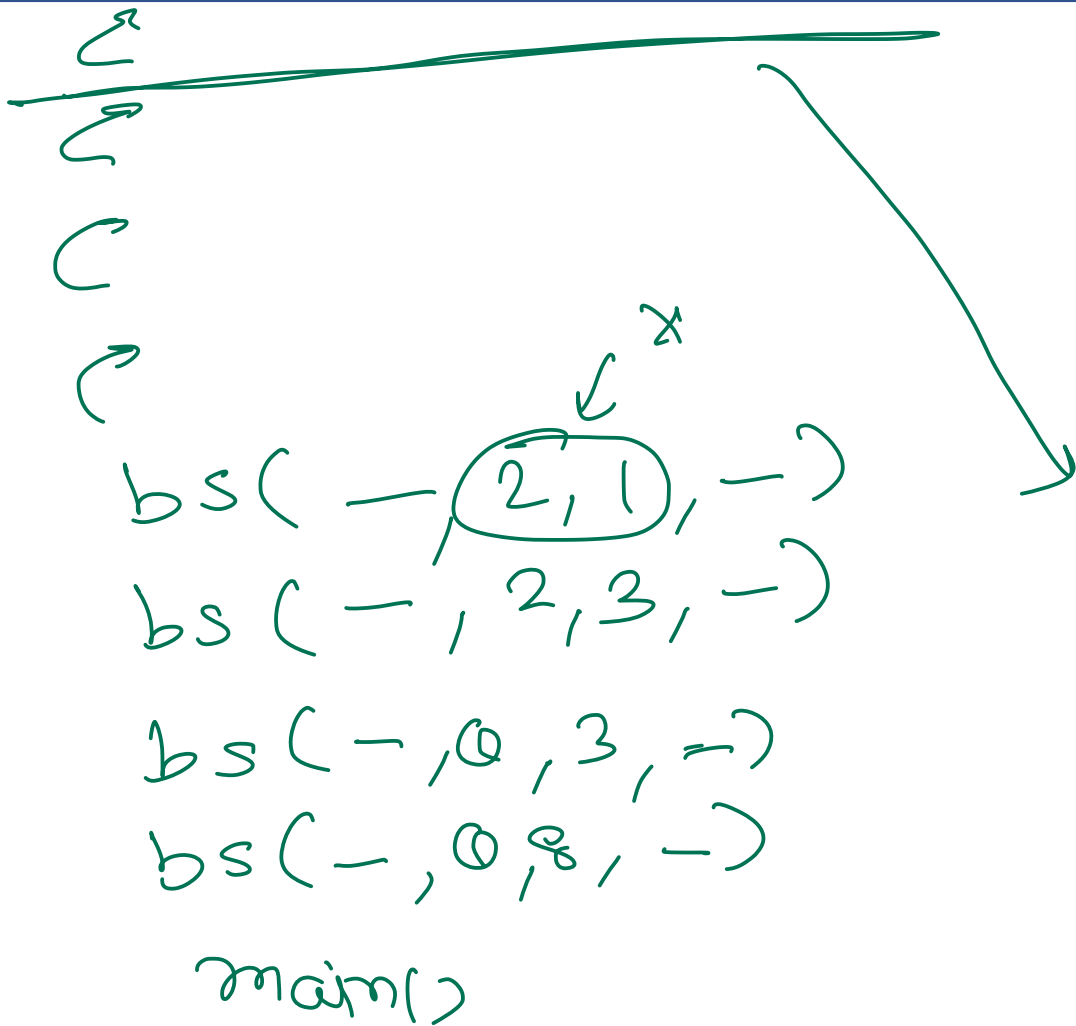 x
bs( — , 2, 1, — )
bs( — , 2, 3, — )
bs( — , 0, 3, — )
bs( — , 0, 8, — )
main()